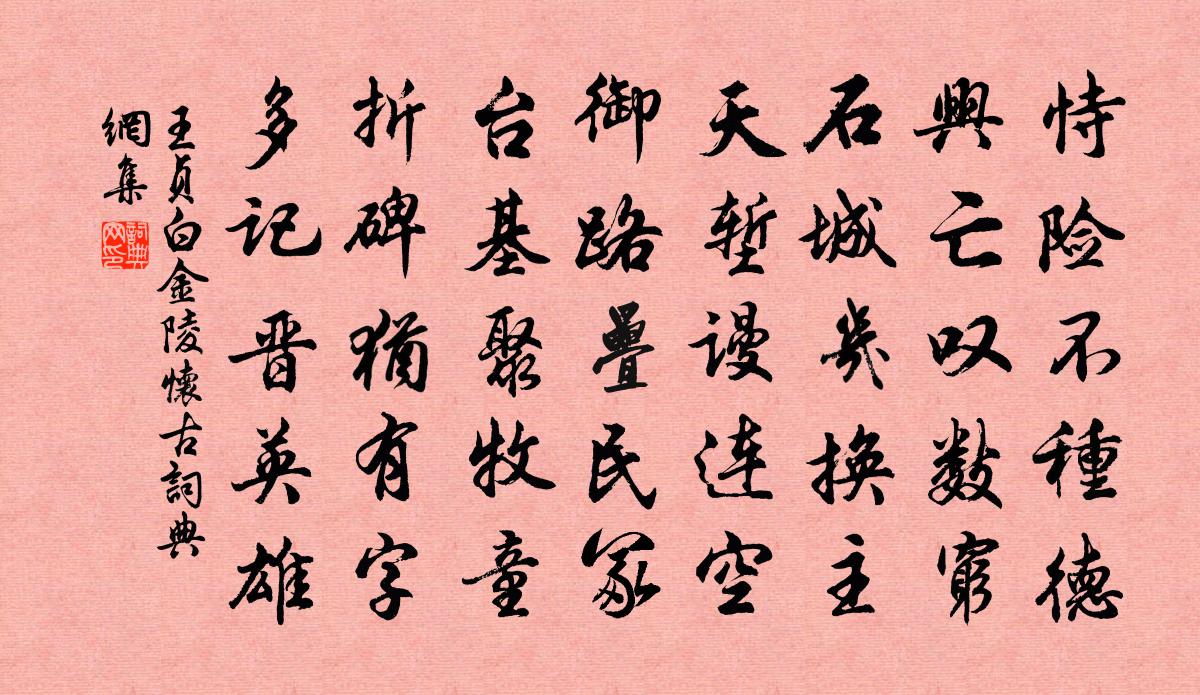 恃险不種德
興亡叹数窮
石城幾换主
天堑谩连空
御路疊民冢
台基聚牧童
折碑猶有字
多记晋英雄
王貞白金陵懷古詞典
網集
詞典網印